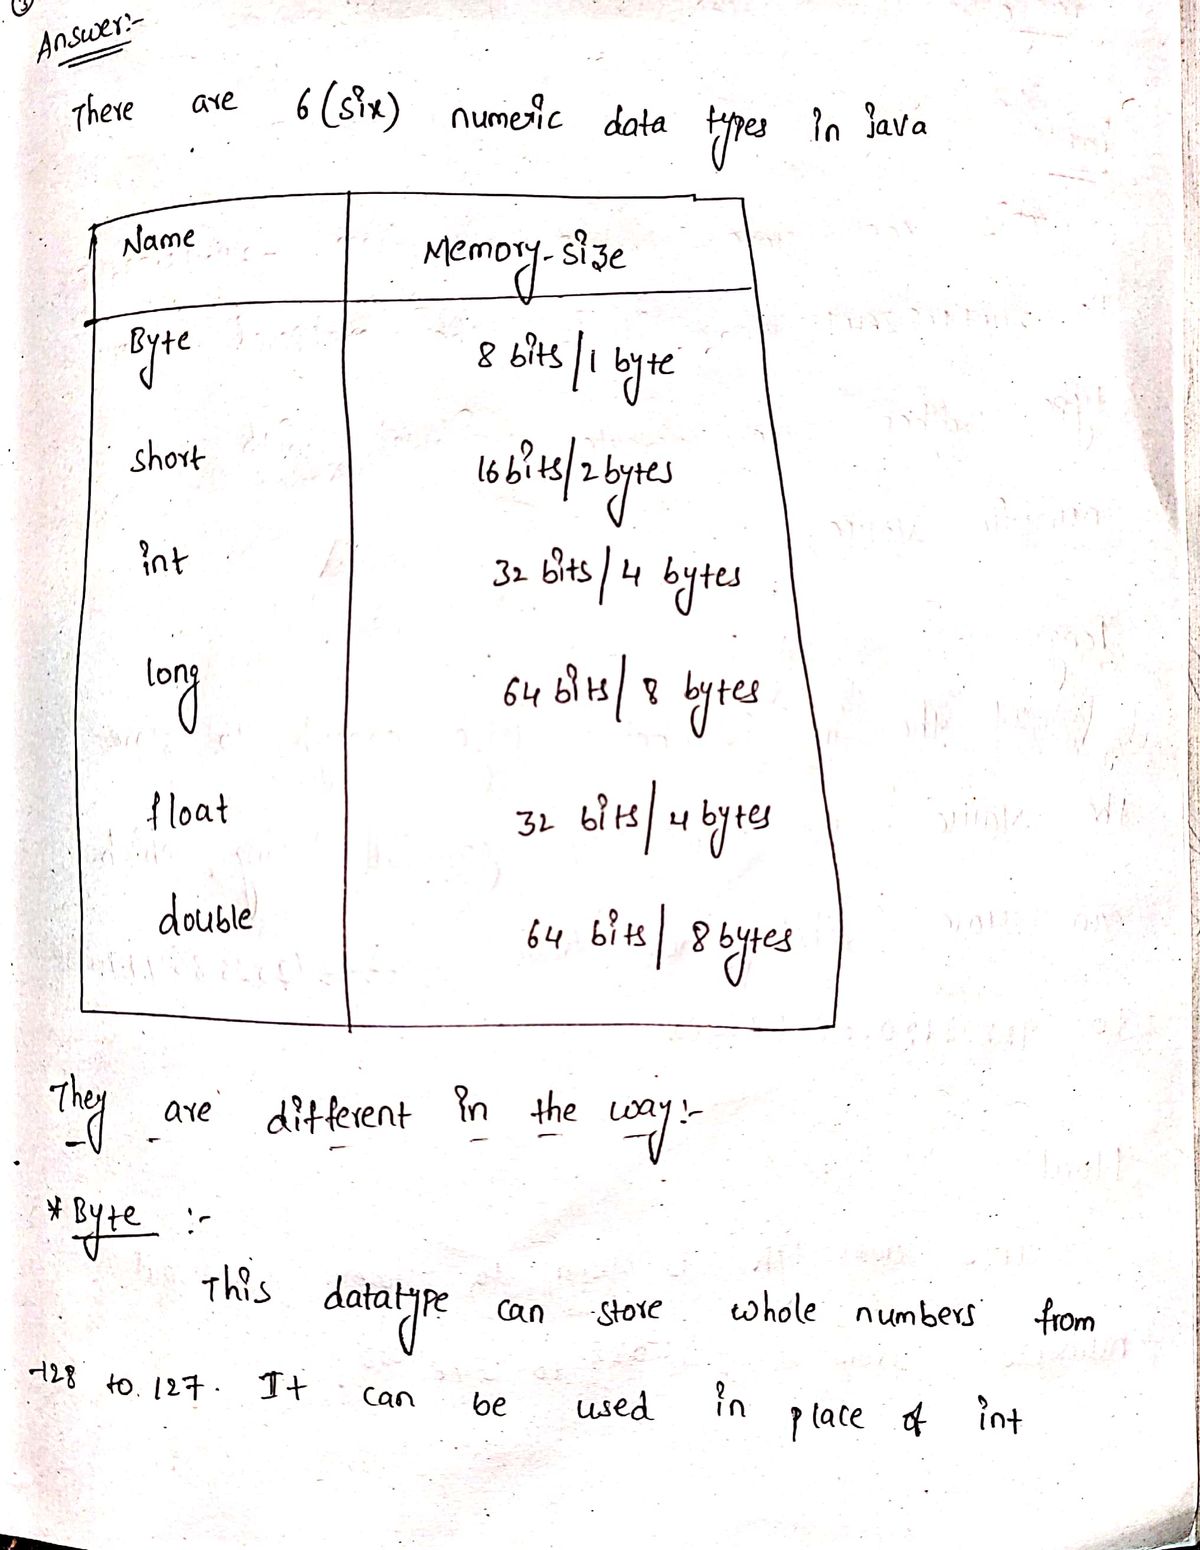 3
Answer:-
There are 6 (six) numeric data types in Java
Name Memory-size
Byte 8 bits/1 byte
short 16 bits/2 bytes
int 32 bits/4 bytes
long 64 bits/8 bytes
float 32 bits/4 bytes
double 64 bits/8 bytes
They are different in the way:-
* Byte :-
This datatype can store whole numbers from
-128 to 127. It can be used in place of int